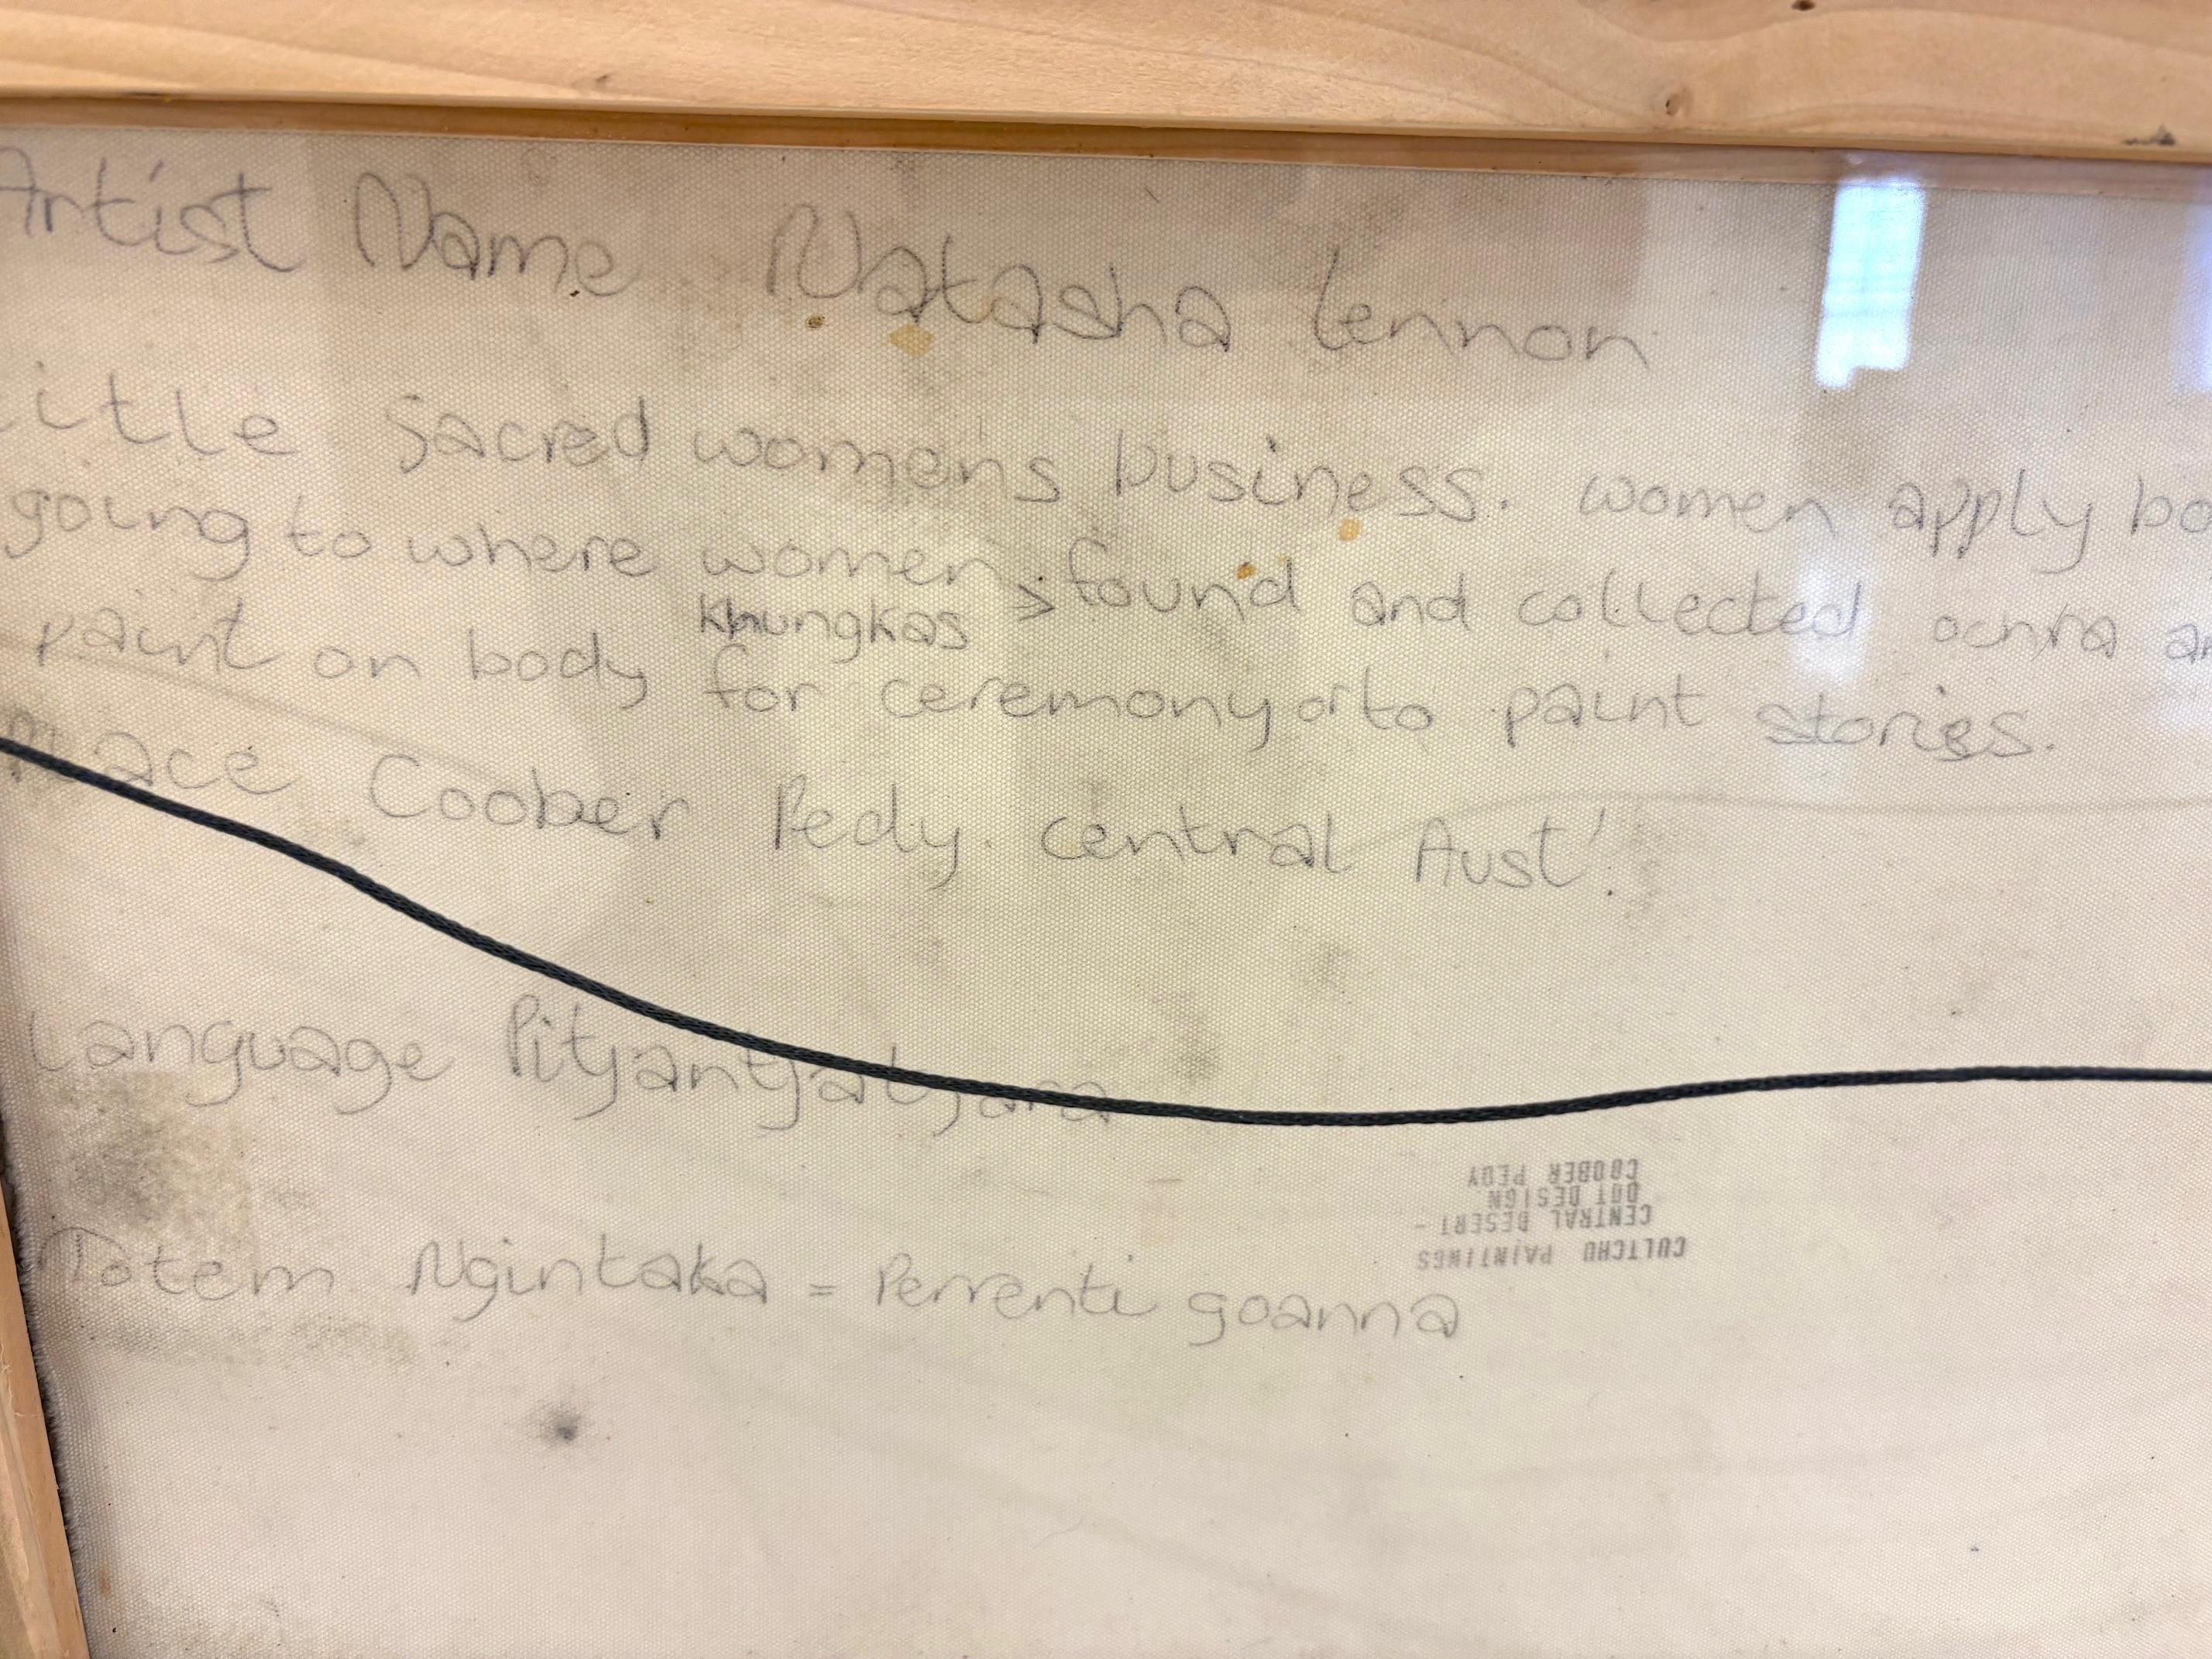 Artist Name Natasha Lennon
itle Sacred womens business. women apply bo
going to where women > found and collected ochra a
khungkas
paint on body for ceremony or to paint stories.
Place Coober Pedy. Central Aust'.
Language Pitjantjatjara
Totem Ngintaka = Perrenti goanna
CULTCHU PAINTINGS
CENTRAL DESERT -
DOT DESIGN
COOBER PEDY